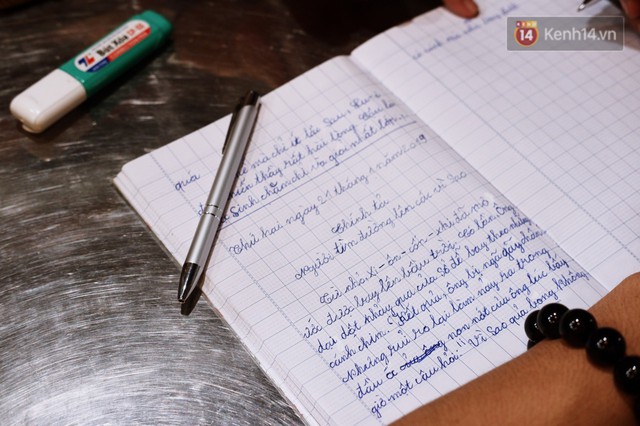 Bút Xóa CP-02
14 Kenh14.vn
qua
mà chỉ ít lâu sau
thấy rất hài lòng
sinh chăm chỉ và giỏi nhất lớp
Thứ hai ngày 21 tháng 1 năm 2019
Chính tả
Người tìm đường lên các vì sao
Từ nhỏ Xi-ôn-cốp-xki đã mơ
ước được bay lên bầu trời. Có lần, ông
dại dột nhảy qua cửa sổ để bay theo những
cánh chim. Kết quả, ông bị ngã gãy chân.
Nhưng rủi ro lại làm nảy ra trong
đầu non nớt của ông lúc bấy
giờ một câu hỏi: "Vì sao quả bóng không